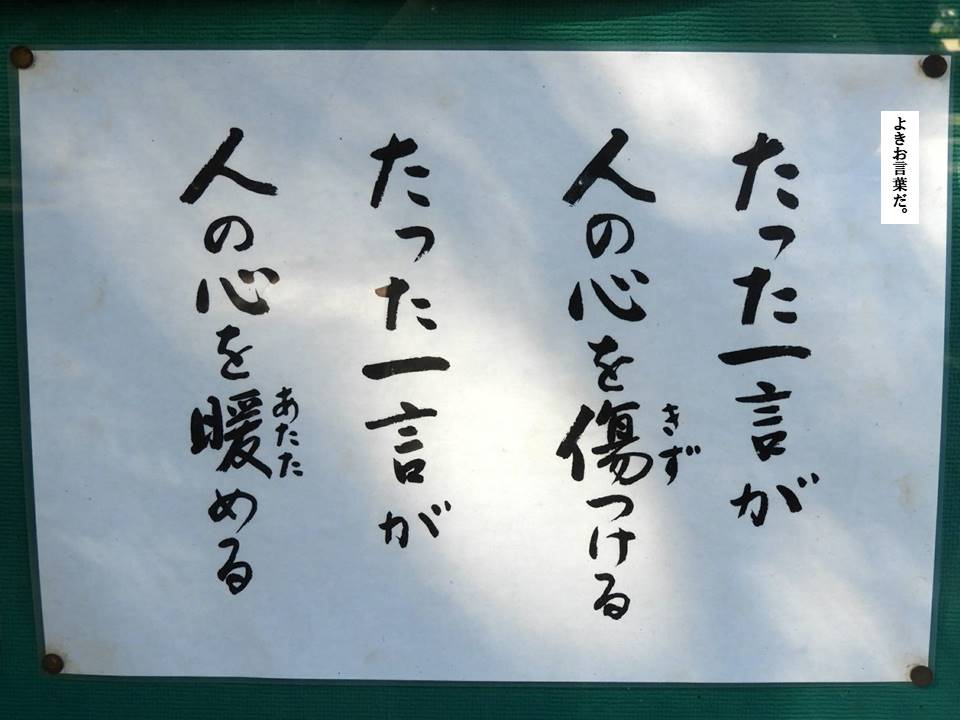 よきお言葉だ。
たった一言が
人の心を傷つける
きず
たった一言が
人の心を暖める
あたた